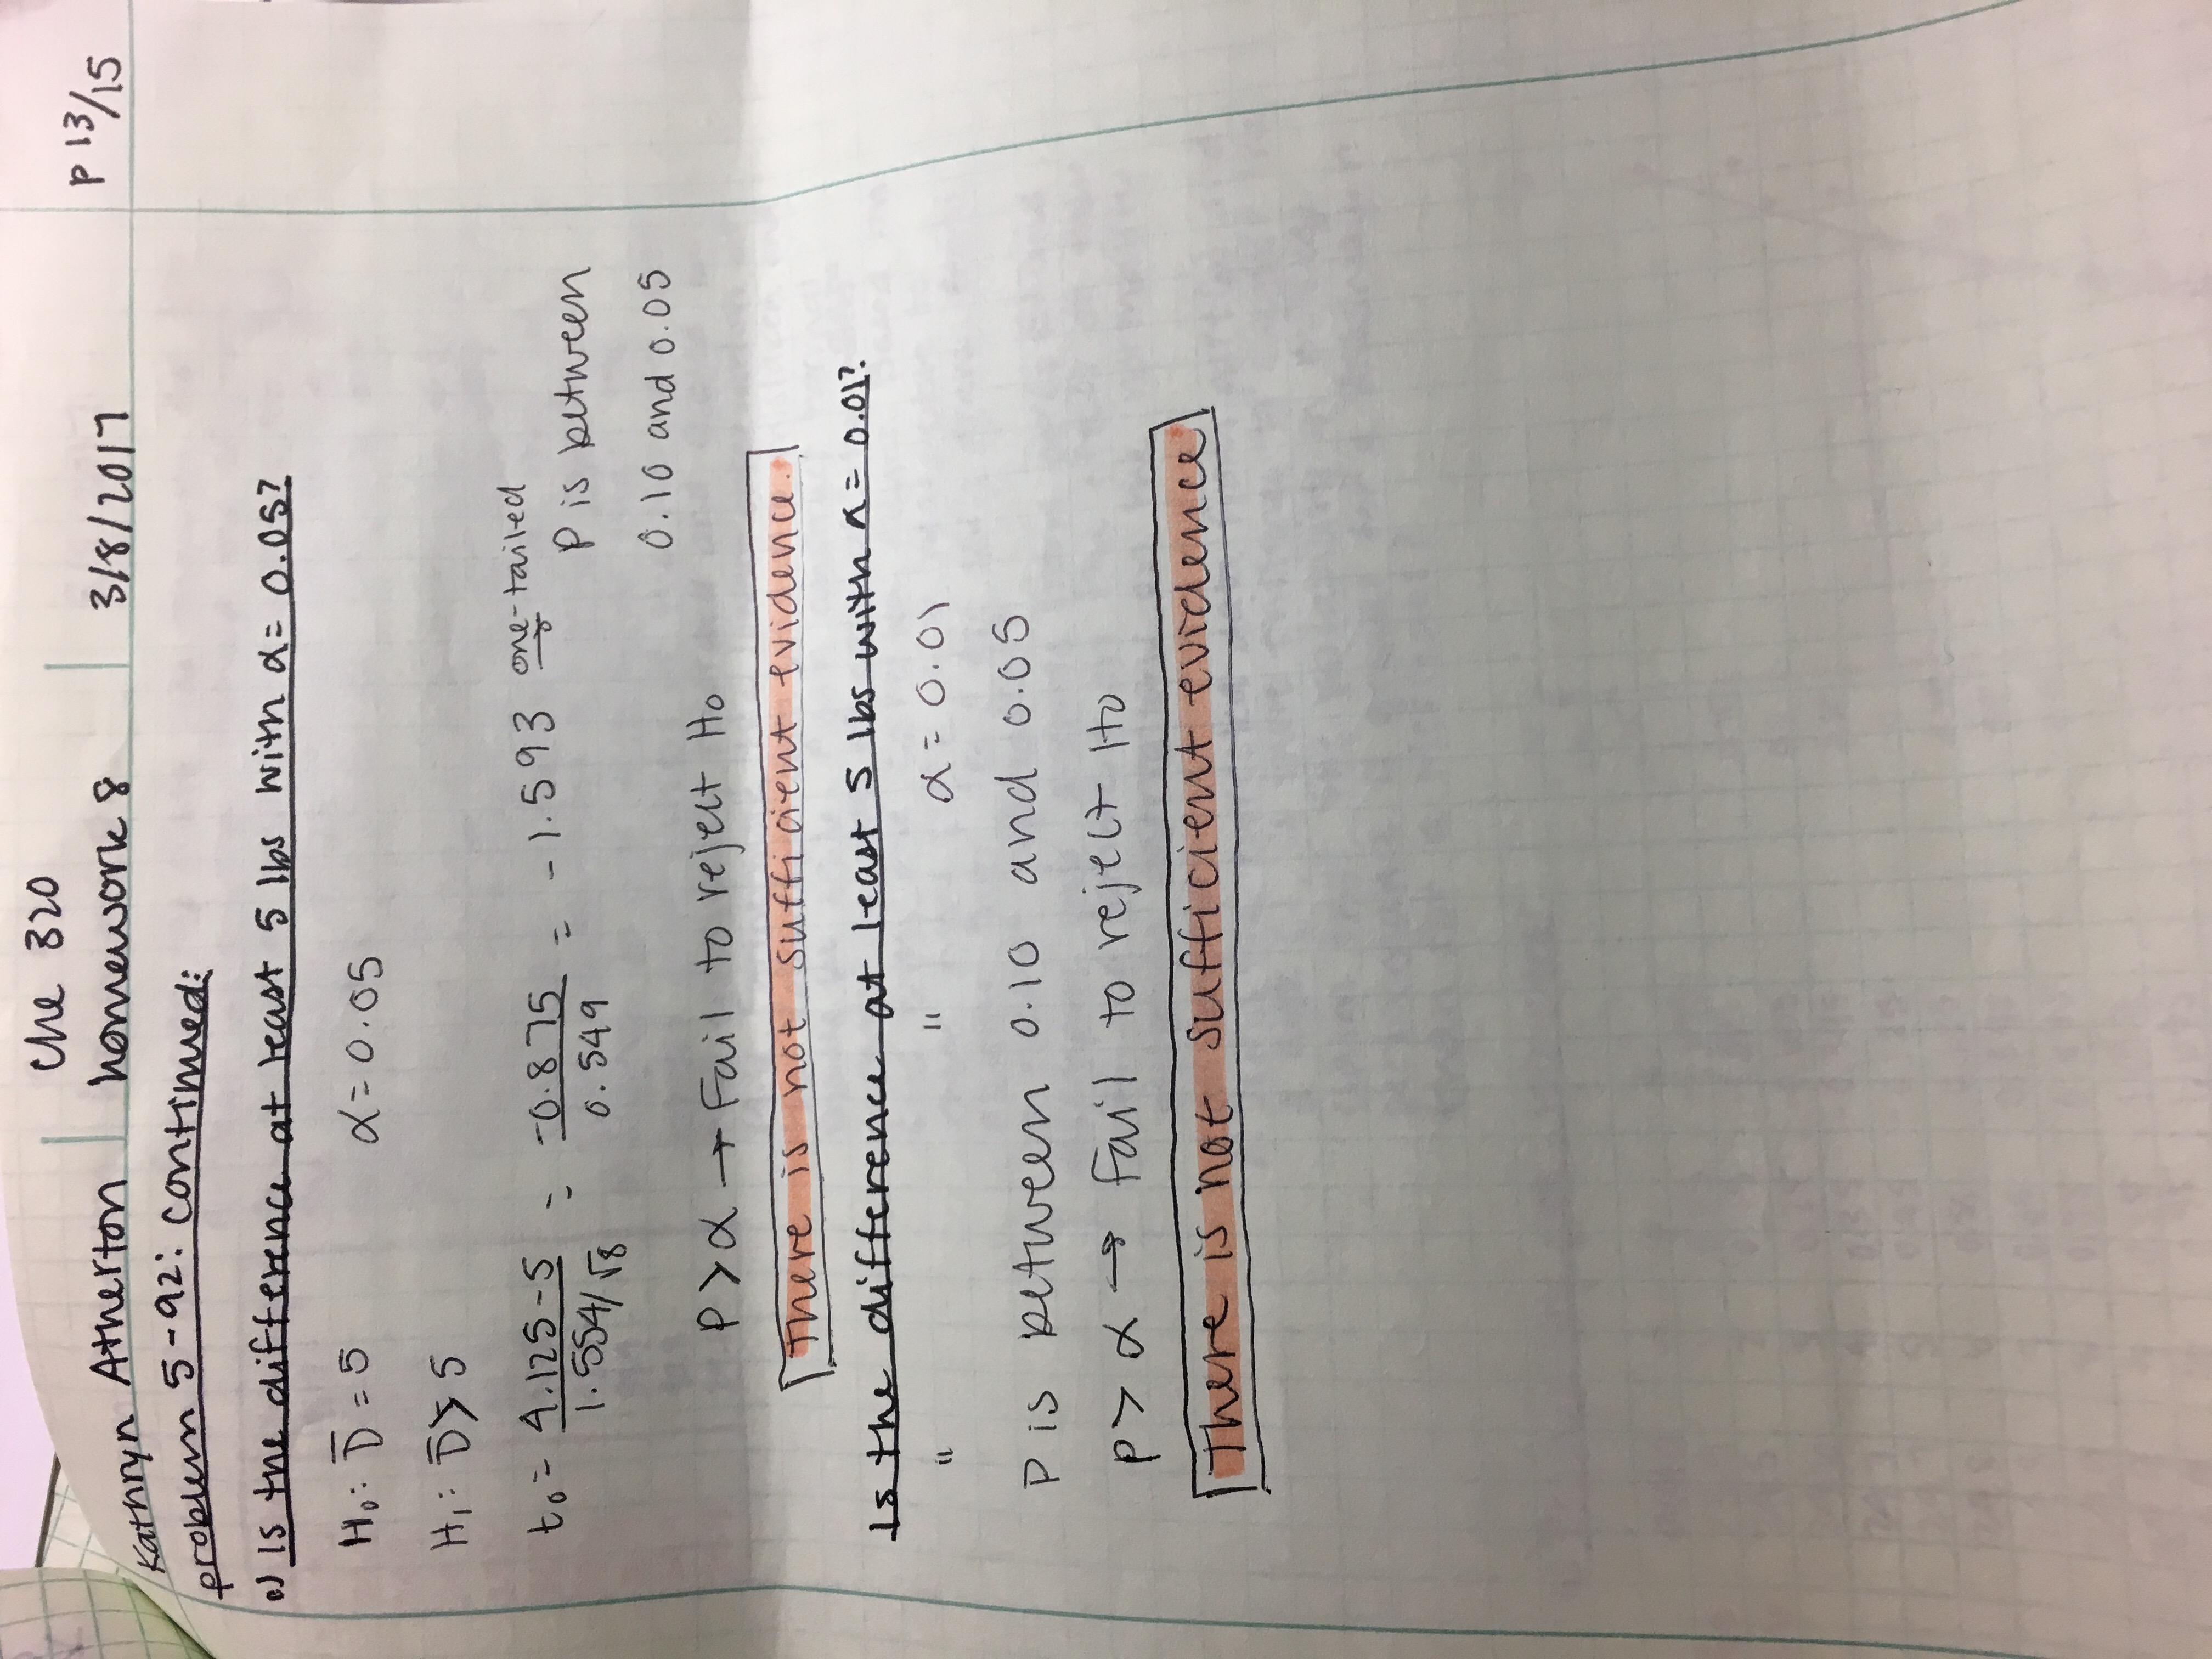 Che 320
Kathryn Atherton homework 8 3/8/2017 P 13/15
problem 5-92: continued:
c) Is the difference at least 5 lbs with α = 0.05?
H₀: D̅ = 5 α = 0.05
H₁: D̅ > 5
t₀ = (4.125-5)/(1.554/√8) = -0.875/0.549 = -1.593 one-tailed →
P is between
0.10 and 0.05
P > α → Fail to reject H₀
There is not sufficient evidence.
Is the difference at least 5 lbs with α = 0.01?
" " α = 0.01
P is between 0.10 and 0.05
P > α → Fail to reject H₀
There is not sufficient evidence